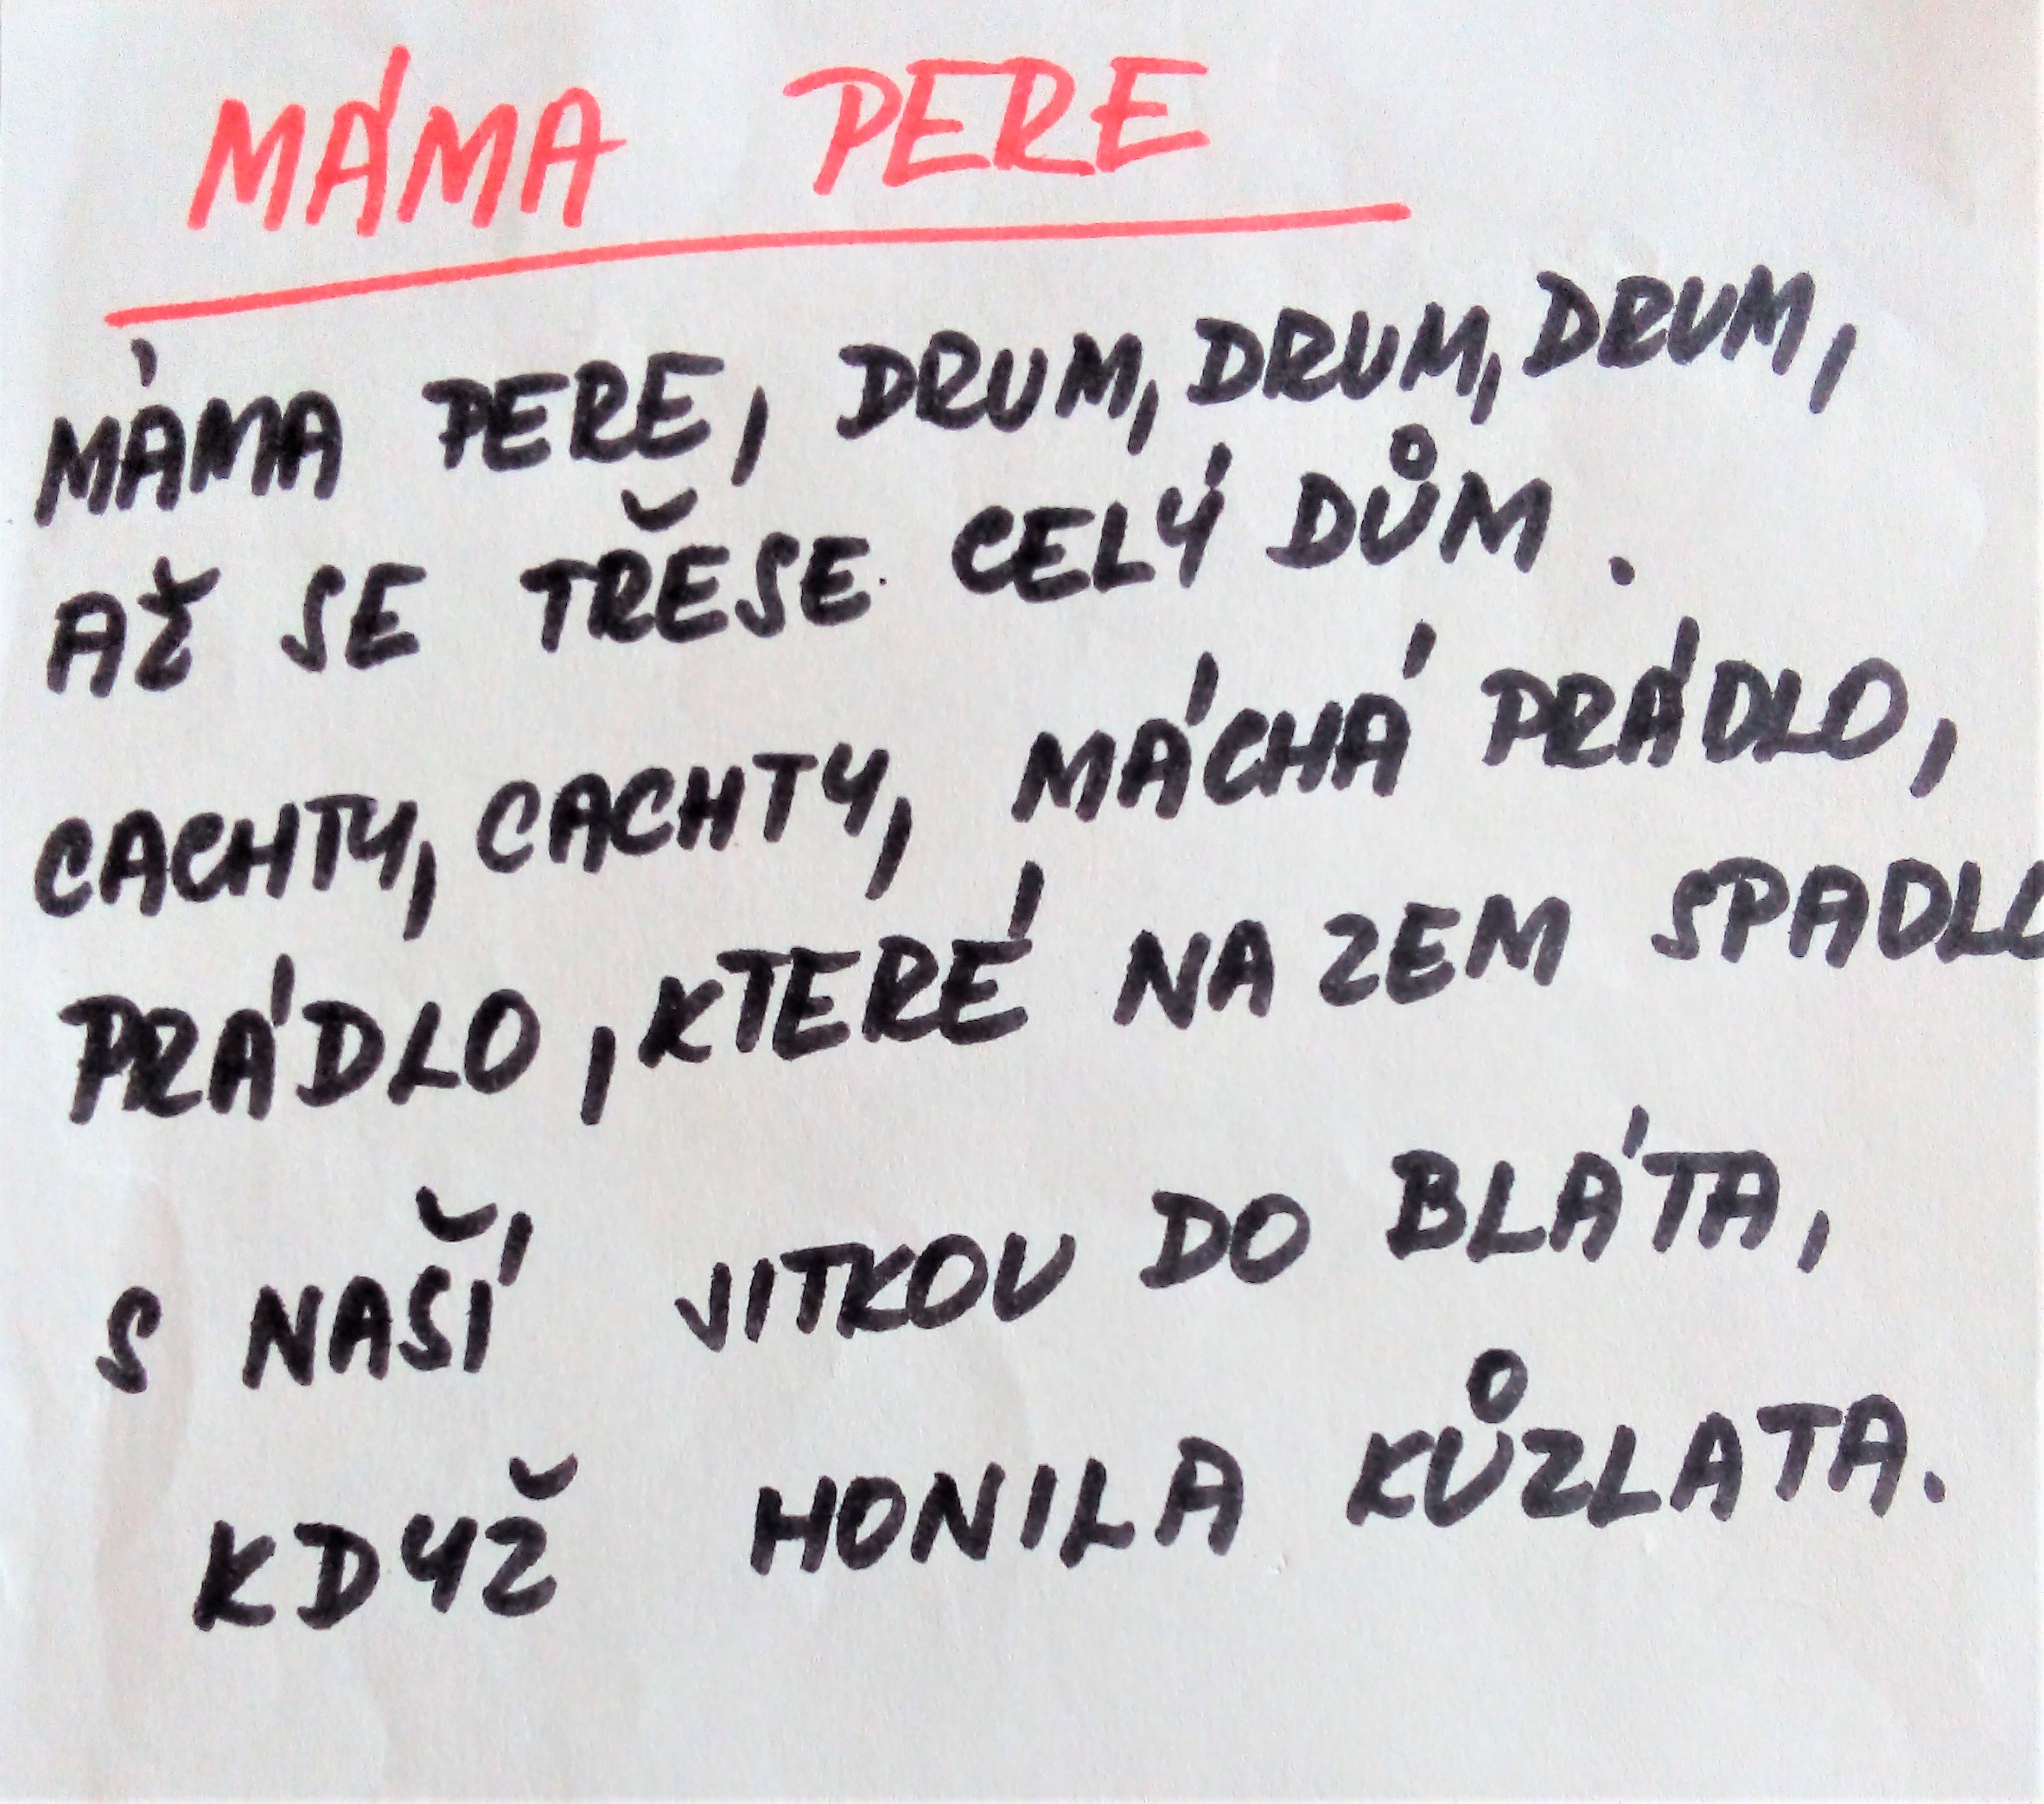 MÁMA PERE
MÁMA PERE, DRUM, DRUM, DRUM,
AŽ SE TŘESE CELÝ DŮM.
CACHTY, CACHTY, MÁCHÁ PRÁDLO,
PRÁDLO, KTERÉ NA ZEM SPADLO
S NAŠÍ JITKOU DO BLÁTA,
KDYŽ HONILA KŮZLATA.